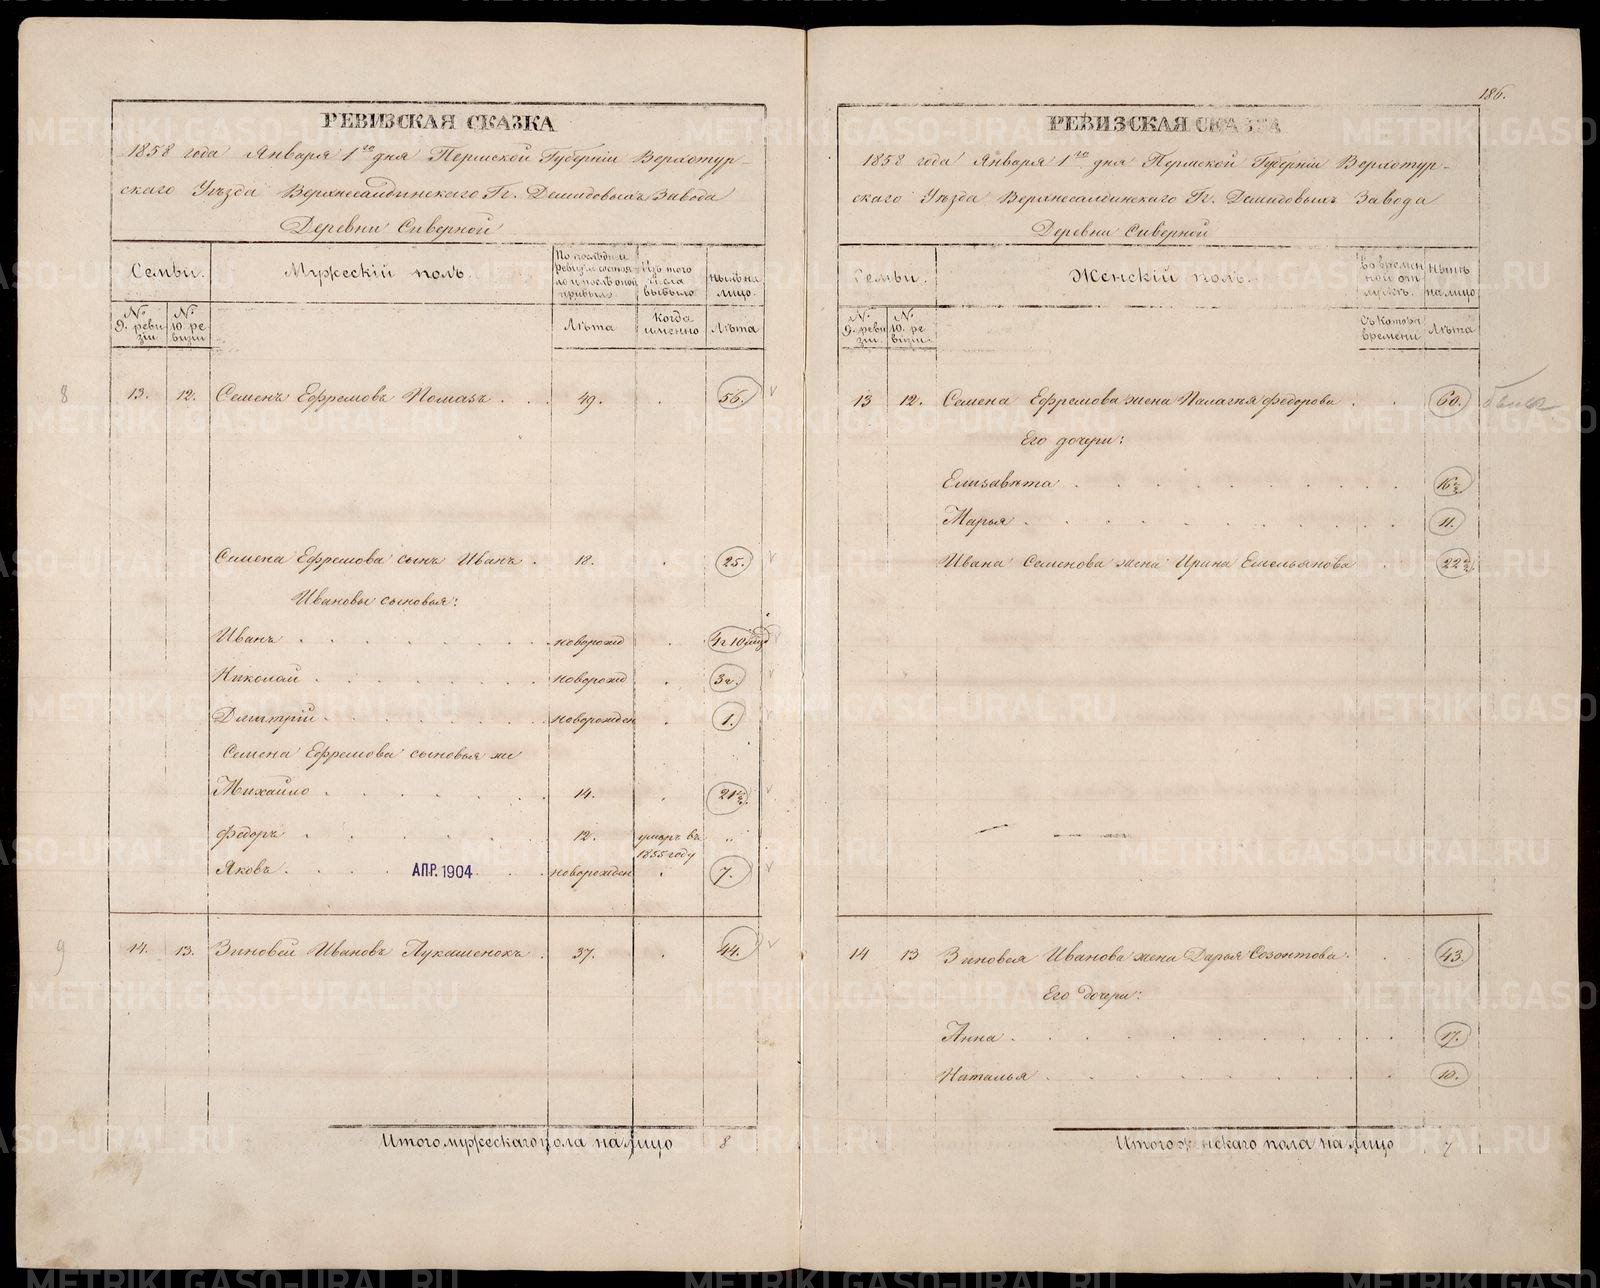 186.
РЕВИЗСКАЯ СКАЗКА
1858 года Января 1го дня Пермской Губерніи Верхотур-
скаго Уѣзда Верхнесалдинскаго Гг. Демидовыхъ Завода
Деревни Сиверной
Семьи. Мужескій полъ. По послѣдней ревизіи состояло и послѣ оной прибыло Изъ того числа выбыло Нынѣ на лицо.
№ 9. ревизіи № 10. ревизіи Лѣта Когда именно Лѣта
8 13. 12. Семенъ Ефремовъ Помазъ 49. 56.
Семена Ефремова сынъ Иванъ 18. 25.
Ивановы сыновья:
Иванъ новорожд 4г 10
Николай новорожд 3г.
Дмитрій новорожден 1.
Семена Ефремова сыновья же
Михайло 14. 21½
Федоръ 12. умеръ въ 1855 году „
Яковъ АПР. 1904 новорожден 7.
9 14. 13. Зиновей Ивановъ Лукашенокъ 37. 44.
Итого мужескаго пола на лицо 8
РЕВИЗСКАЯ СКАЗКА
1858 года Января 1го дня Пермской Губерніи Верхотур-
скаго Уѣзда Верхнесалдинскаго Гг. Демидовыхъ Завода
Деревни Сиверной
Семьи. Женскій полъ. Во временной отлучкѣ. Нынѣ на лицо
№ 9. ревизіи № 10. ревизіи Съ котора времени Лѣта
13 12. Семена Ефремова жена Палагея Федорова 60.
Его дочери:
Елизавѣта 16½
Марья 11.
Ивана Семенова жена Ирина Емельянова 22½
14 13 Зиновея Иванова жена Дарья Созонтова. 43.
Его дочери:
Анна 17.
Наталья 10.
Итого женскаго пола на лицо 7
METRIKI.GASO-URAL.RU